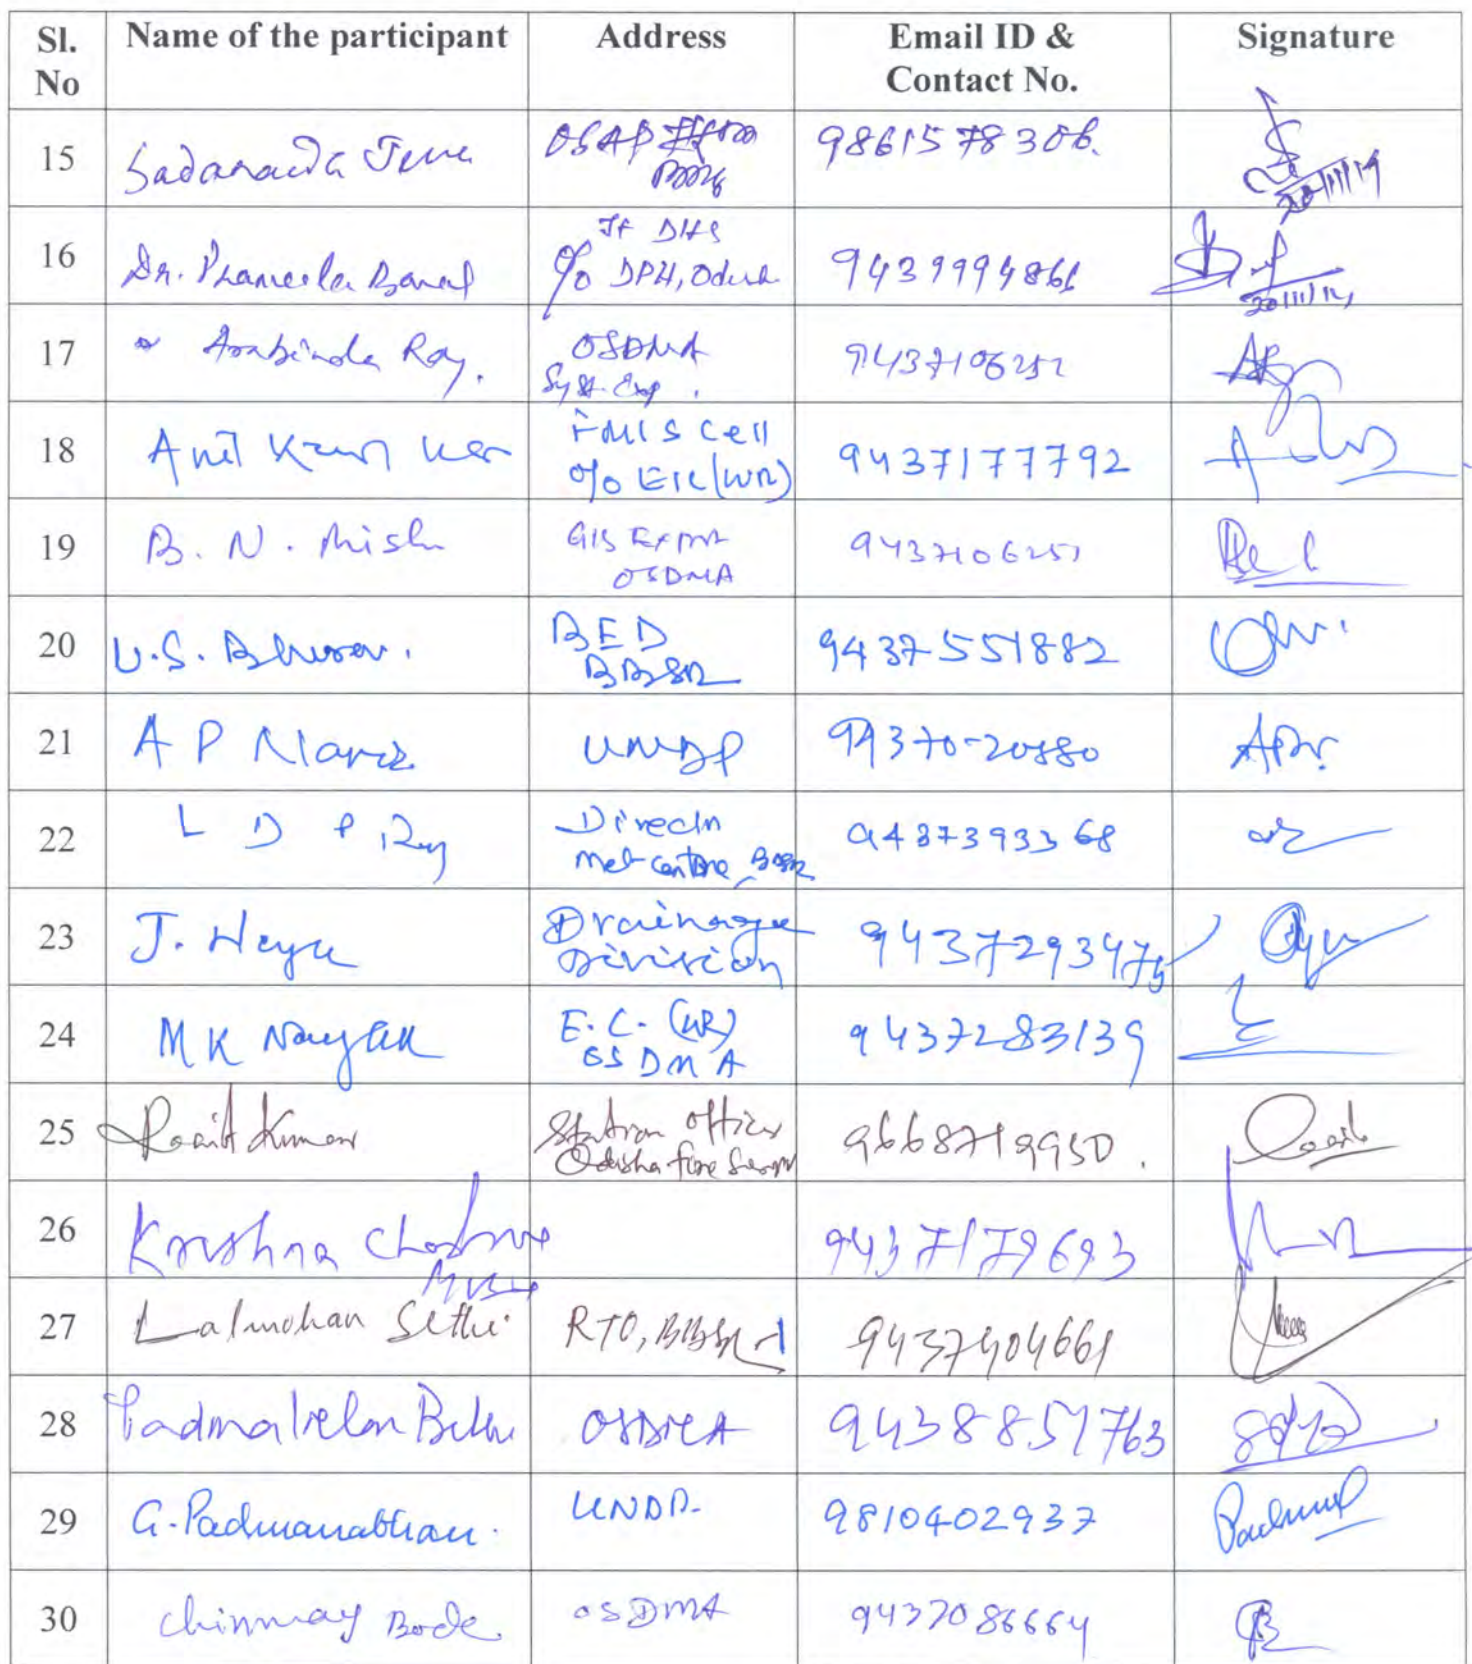 Sl. No Name of the participant Address Email ID & Contact No. Signature
15 Sadananda Jena OSAP 7th BN BBSR 9861578306. 20/11/19
16 Dr. Prameela Baral Jt DHS O/o DPH, Odisha 9439994861 20/11/19
17 Arabinda Roy. OSDMA Syst. Exp. 9437106252
18 Anil Kumar FMIS Cell O/o EIC (WR) 9437177792
19 B. N. Mishra GIS Expert OSDMA 9437106251
20 U.S. BED BBSR 9437551882
21 A P UNDP 94370-20880
22 L D P Ray Director Met centre, BBSR 9437393368
23 J. Drainage Division 9437293475
24 M K Nayak E.C. (WR) OSDMA 9437283139
25 Kumar Station officer Odisha fire Service 9668719950.
26 Krishna 9437179693
27 Lalmohan Sethi RTO, BBSR-1 9437404661
28 OSDMA 9438851763
29 G. Padmanabhan. UNDP. 9810402937
30 Chinmay OSDMA 9437086664